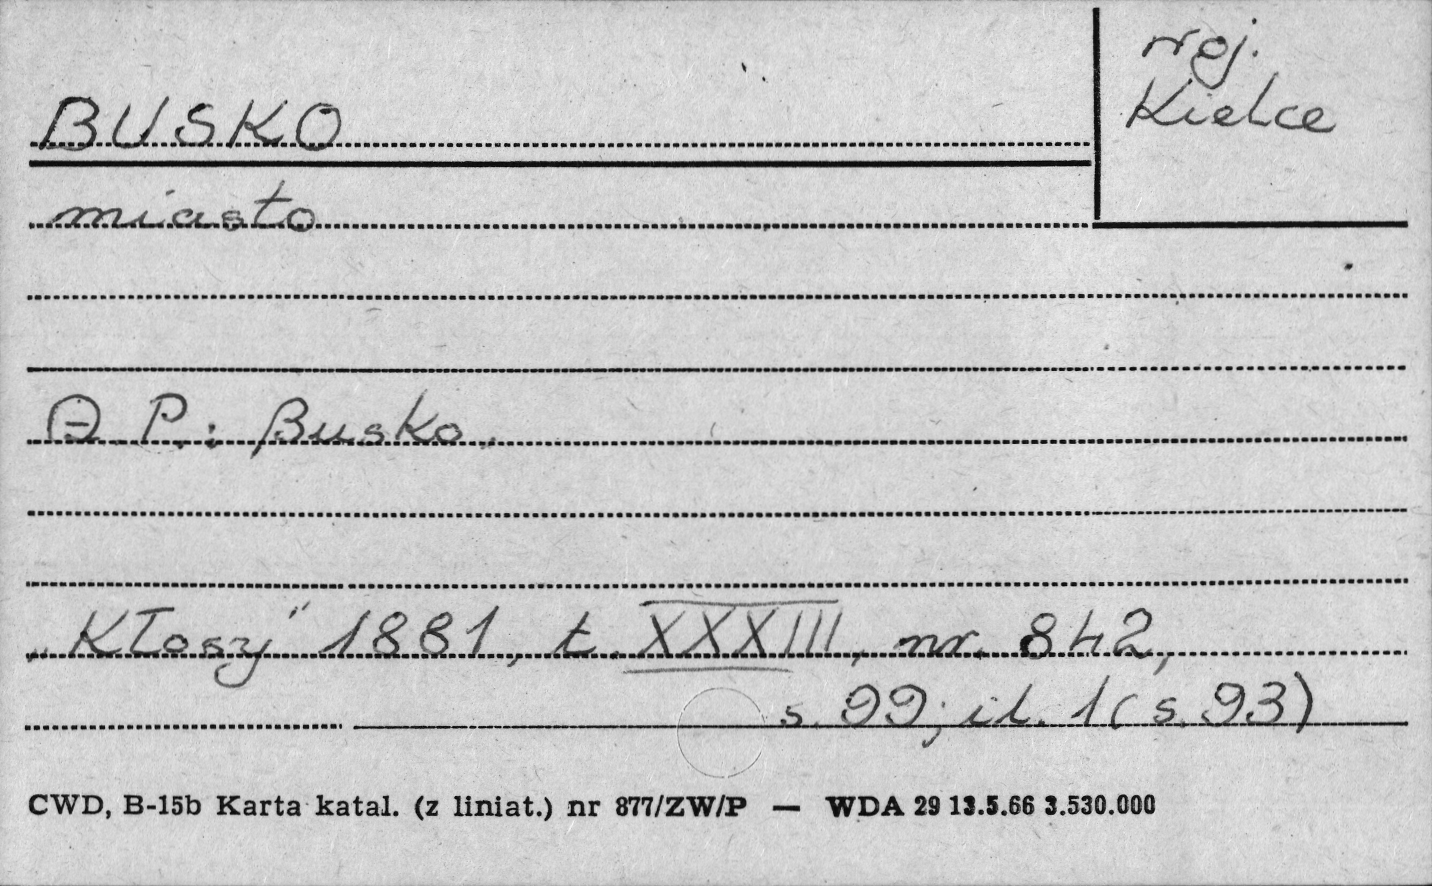 BUSKO
woj.
Kielce
miasto
A. P.: Busko.
„Kłosy" 1881, t. XXXIII, nr. 842,
s. 99; il. 1 (s. 93)
CWD, B-15b Karta katal. (z liniat.) nr 877/ZW/P — WDA 29 13.5.66 3.530.000